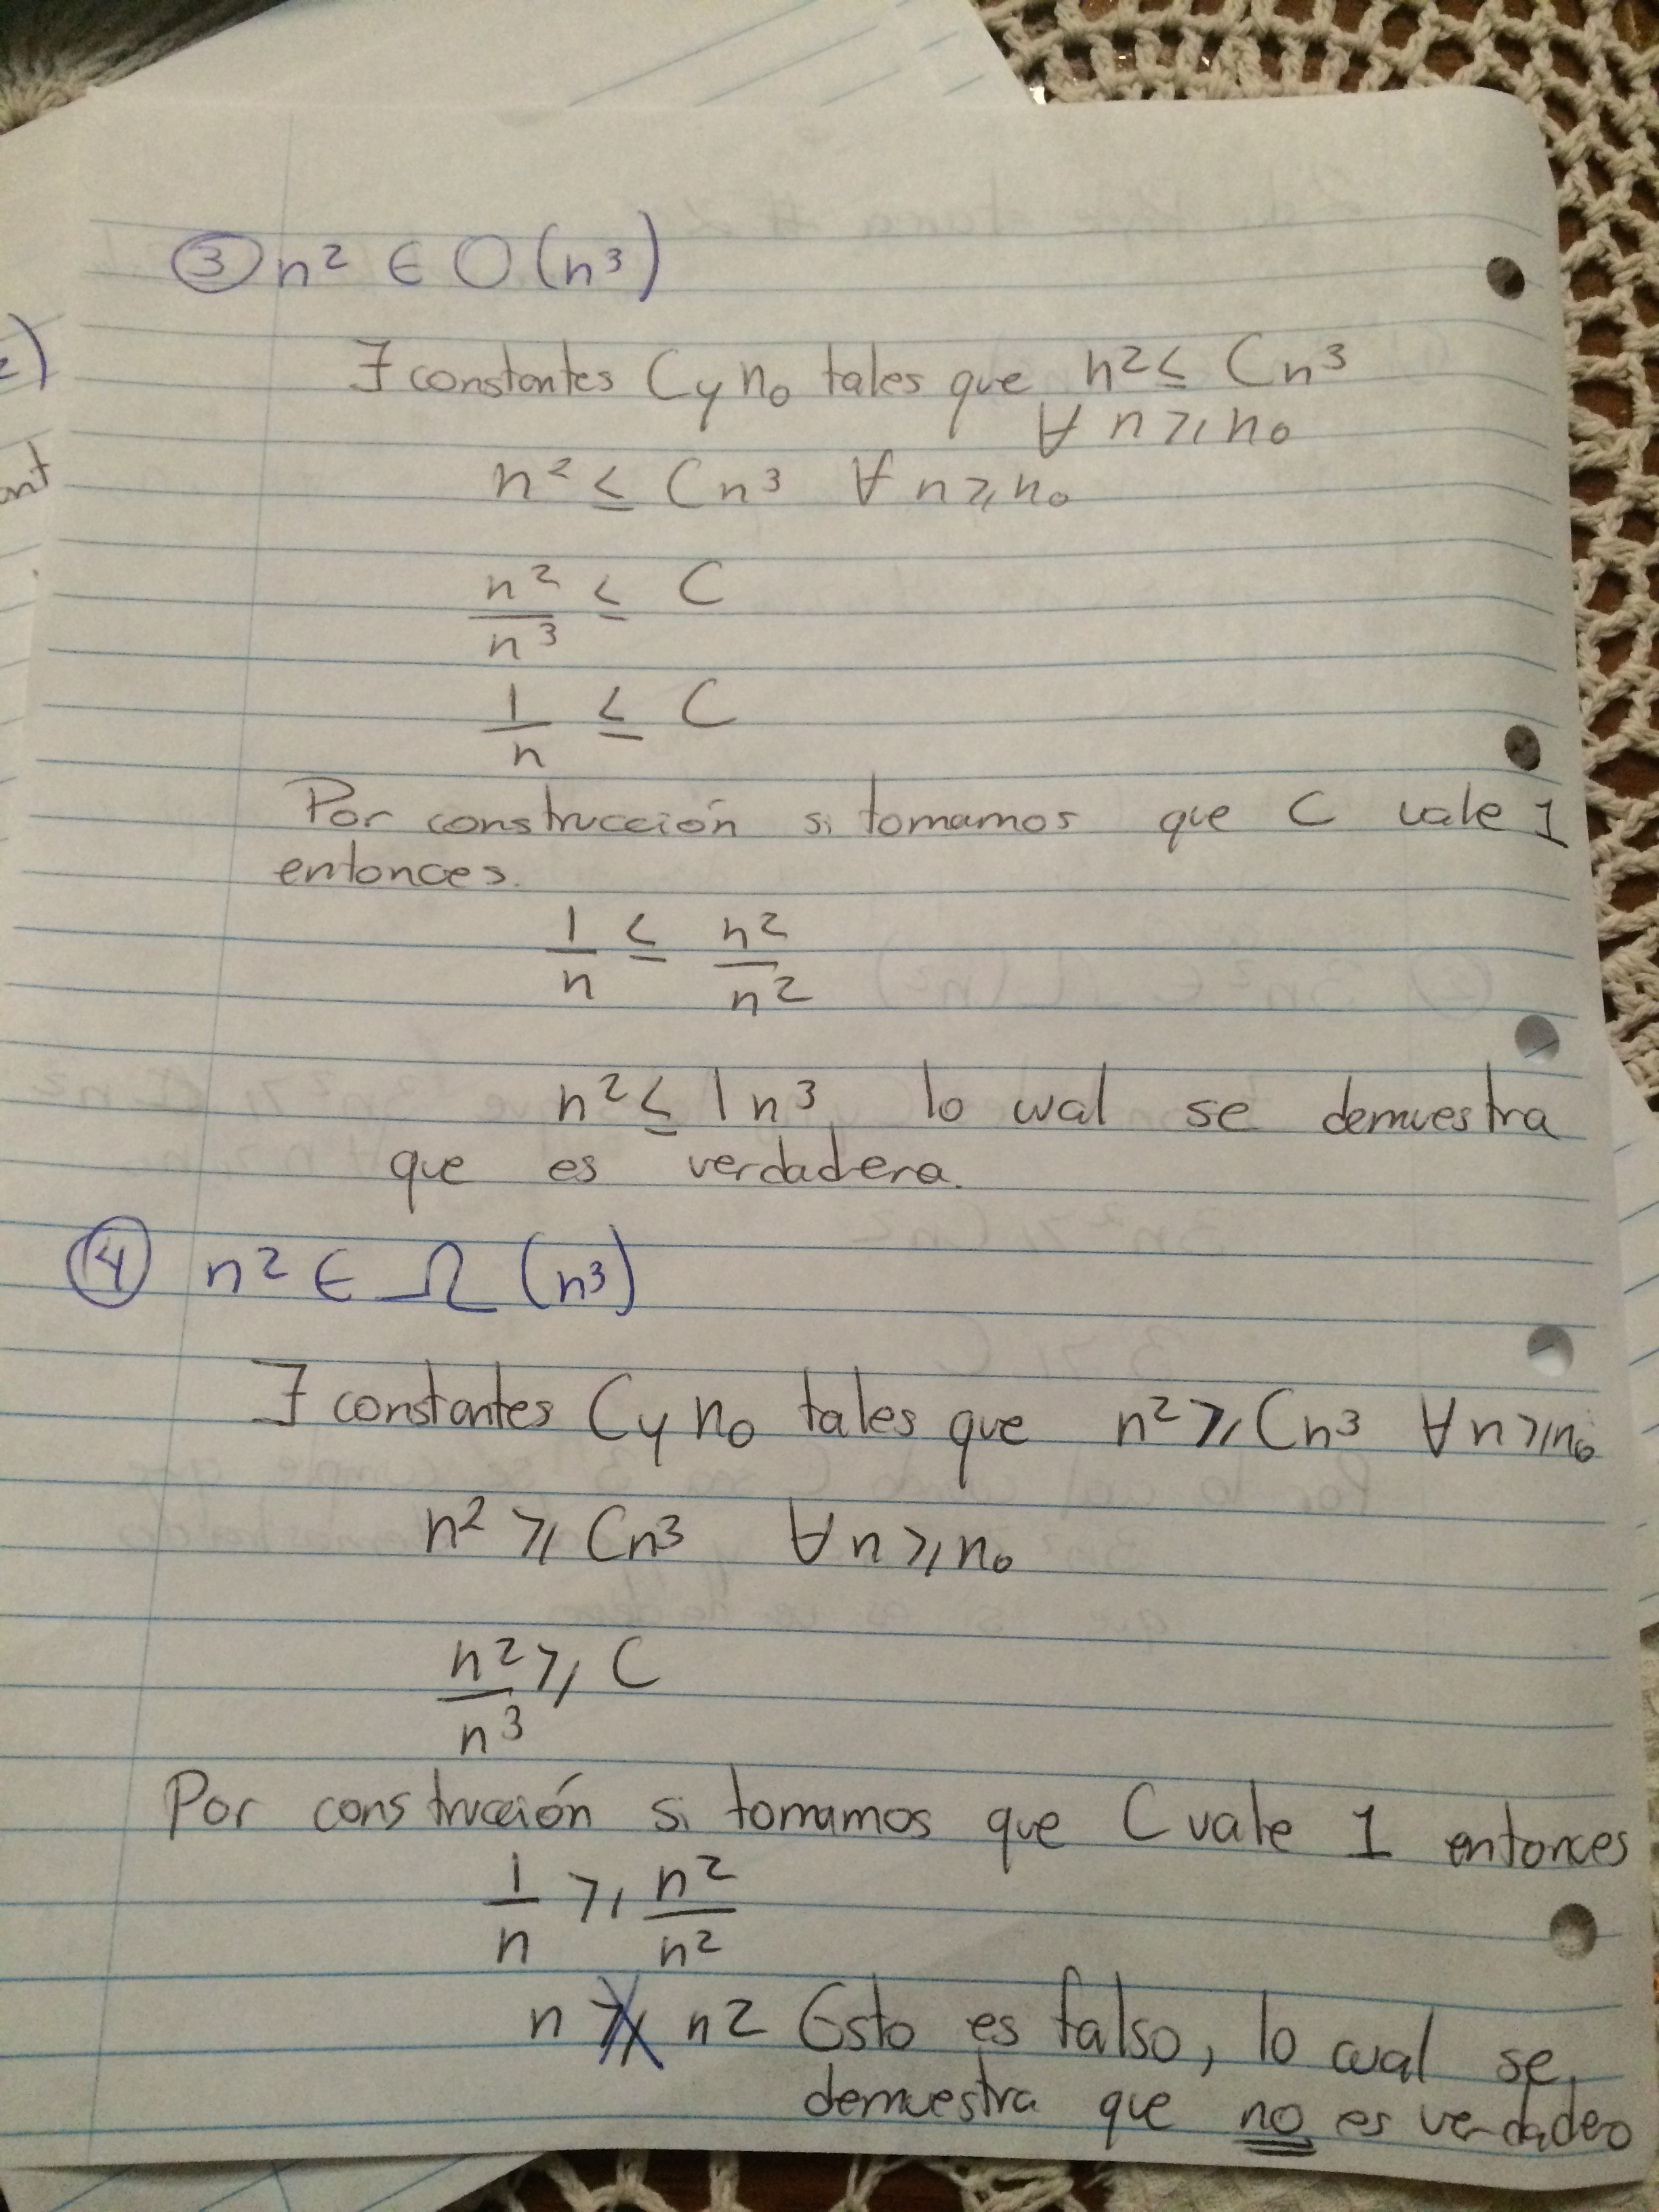 ③ n² ∈ O(n³)
∃ constantes C y n₀ tales que n² ≤ Cn³
∀ n ≥ n₀
n² ≤ Cn³ ∀ n ≥ n₀
n²/n³ ≤ C
1/n ≤ C
Por construcción si tomamos que C vale 1
entonces.
1/n ≤ n²/n²
n² ≤ 1n³ lo cual se demuestra
que es verdadera.
④ n² ∈ Ω (n³)
∃ constantes C y n₀ tales que n² ≥ Cn³ ∀ n ≥ n₀
n² ≥ Cn³ ∀ n ≥ n₀
n²/n³ ≥ C
Por construcción si tomamos que C vale 1 entonces
1/n ≥ n²/n²
n ≱ n2 Esto es falso, lo cual se
demuestra que no es verdadero